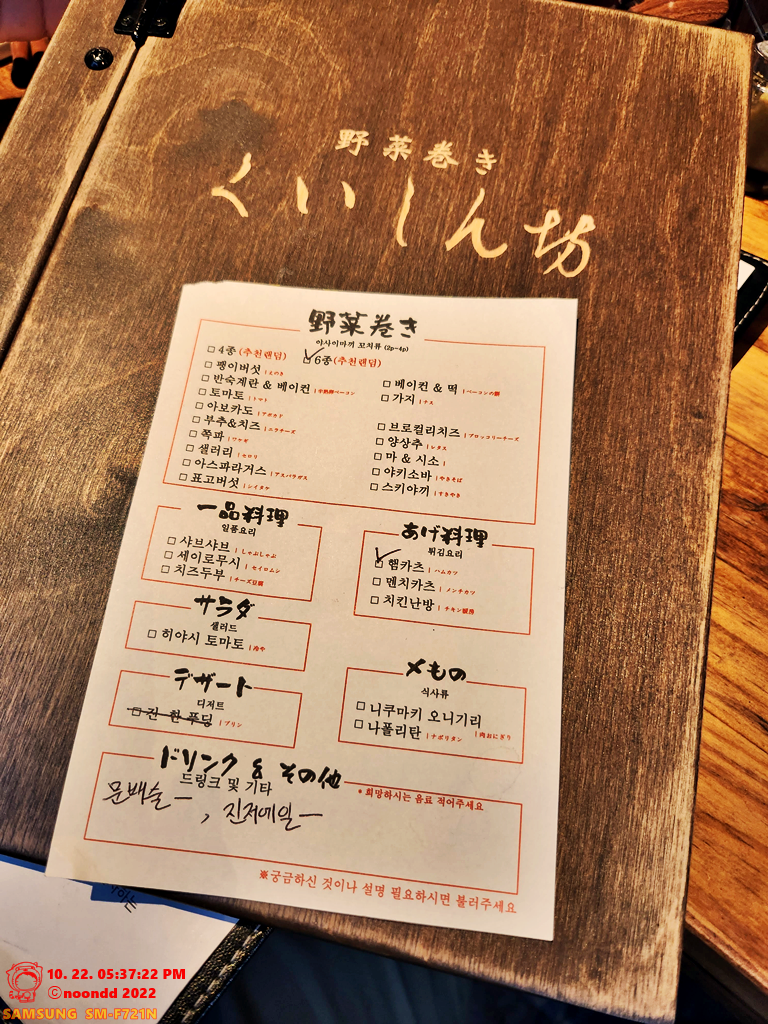 野菜巻き
くいしん坊
野菜巻き
야사이마끼 꼬치류 (2p-4p)
□ 4종 (추천랜덤) □ 6종 (추천랜덤)
□ 팽이버섯 | えのき
□ 반숙계란 & 베이컨 | 半熟卵ベーコン
□ 토마토 | トマト
□ 아보카도 | アボカド
□ 부추&치즈 | ニラチーズ
□ 쪽파 | ワケギ
□ 샐러리 | セロリ
□ 아스파라거스 | アスパラガス
□ 표고버섯 | シイタケ
□ 베이컨 & 떡 | ベーコンの餅
□ 가지 | ナス
□ 브로컬리치즈 | ブロッコリーチーズ
□ 양상추 | レタス
□ 마 & 시소 |
□ 야키소바 | やきそば
□ 스키야끼 | すきやき
一品料理
일품요리
□ 샤브샤브 | しゃぶしゃぶ
□ 세이로무시 | セイロムシ
□ 치즈두부 | チーズ豆腐
あげ料理
튀김요리
□ 햄카츠 | ハムカツ
□ 멘치카츠 | メンチカツ
□ 치킨난방 | チキン南蛮
サラダ
샐러드
□ 히야시 토마토 | 冷や
デザート
디저트
□ 진 한 푸딩 | プリン
〆もの
식사류
□ 니쿠마키 오니기리
| 肉おにぎり
□ 나폴리탄 | ナポリタン
ドリンク & その他
드링크 및 기타
* 희망하시는 음료 적어주세요
문배술 一 , 진저에일 一
※궁금하신 것이나 설명 필요하시면 불러주세요
10. 22. 05:37:22 PM
©noondd 2022
SAMSUNG SM-F721N